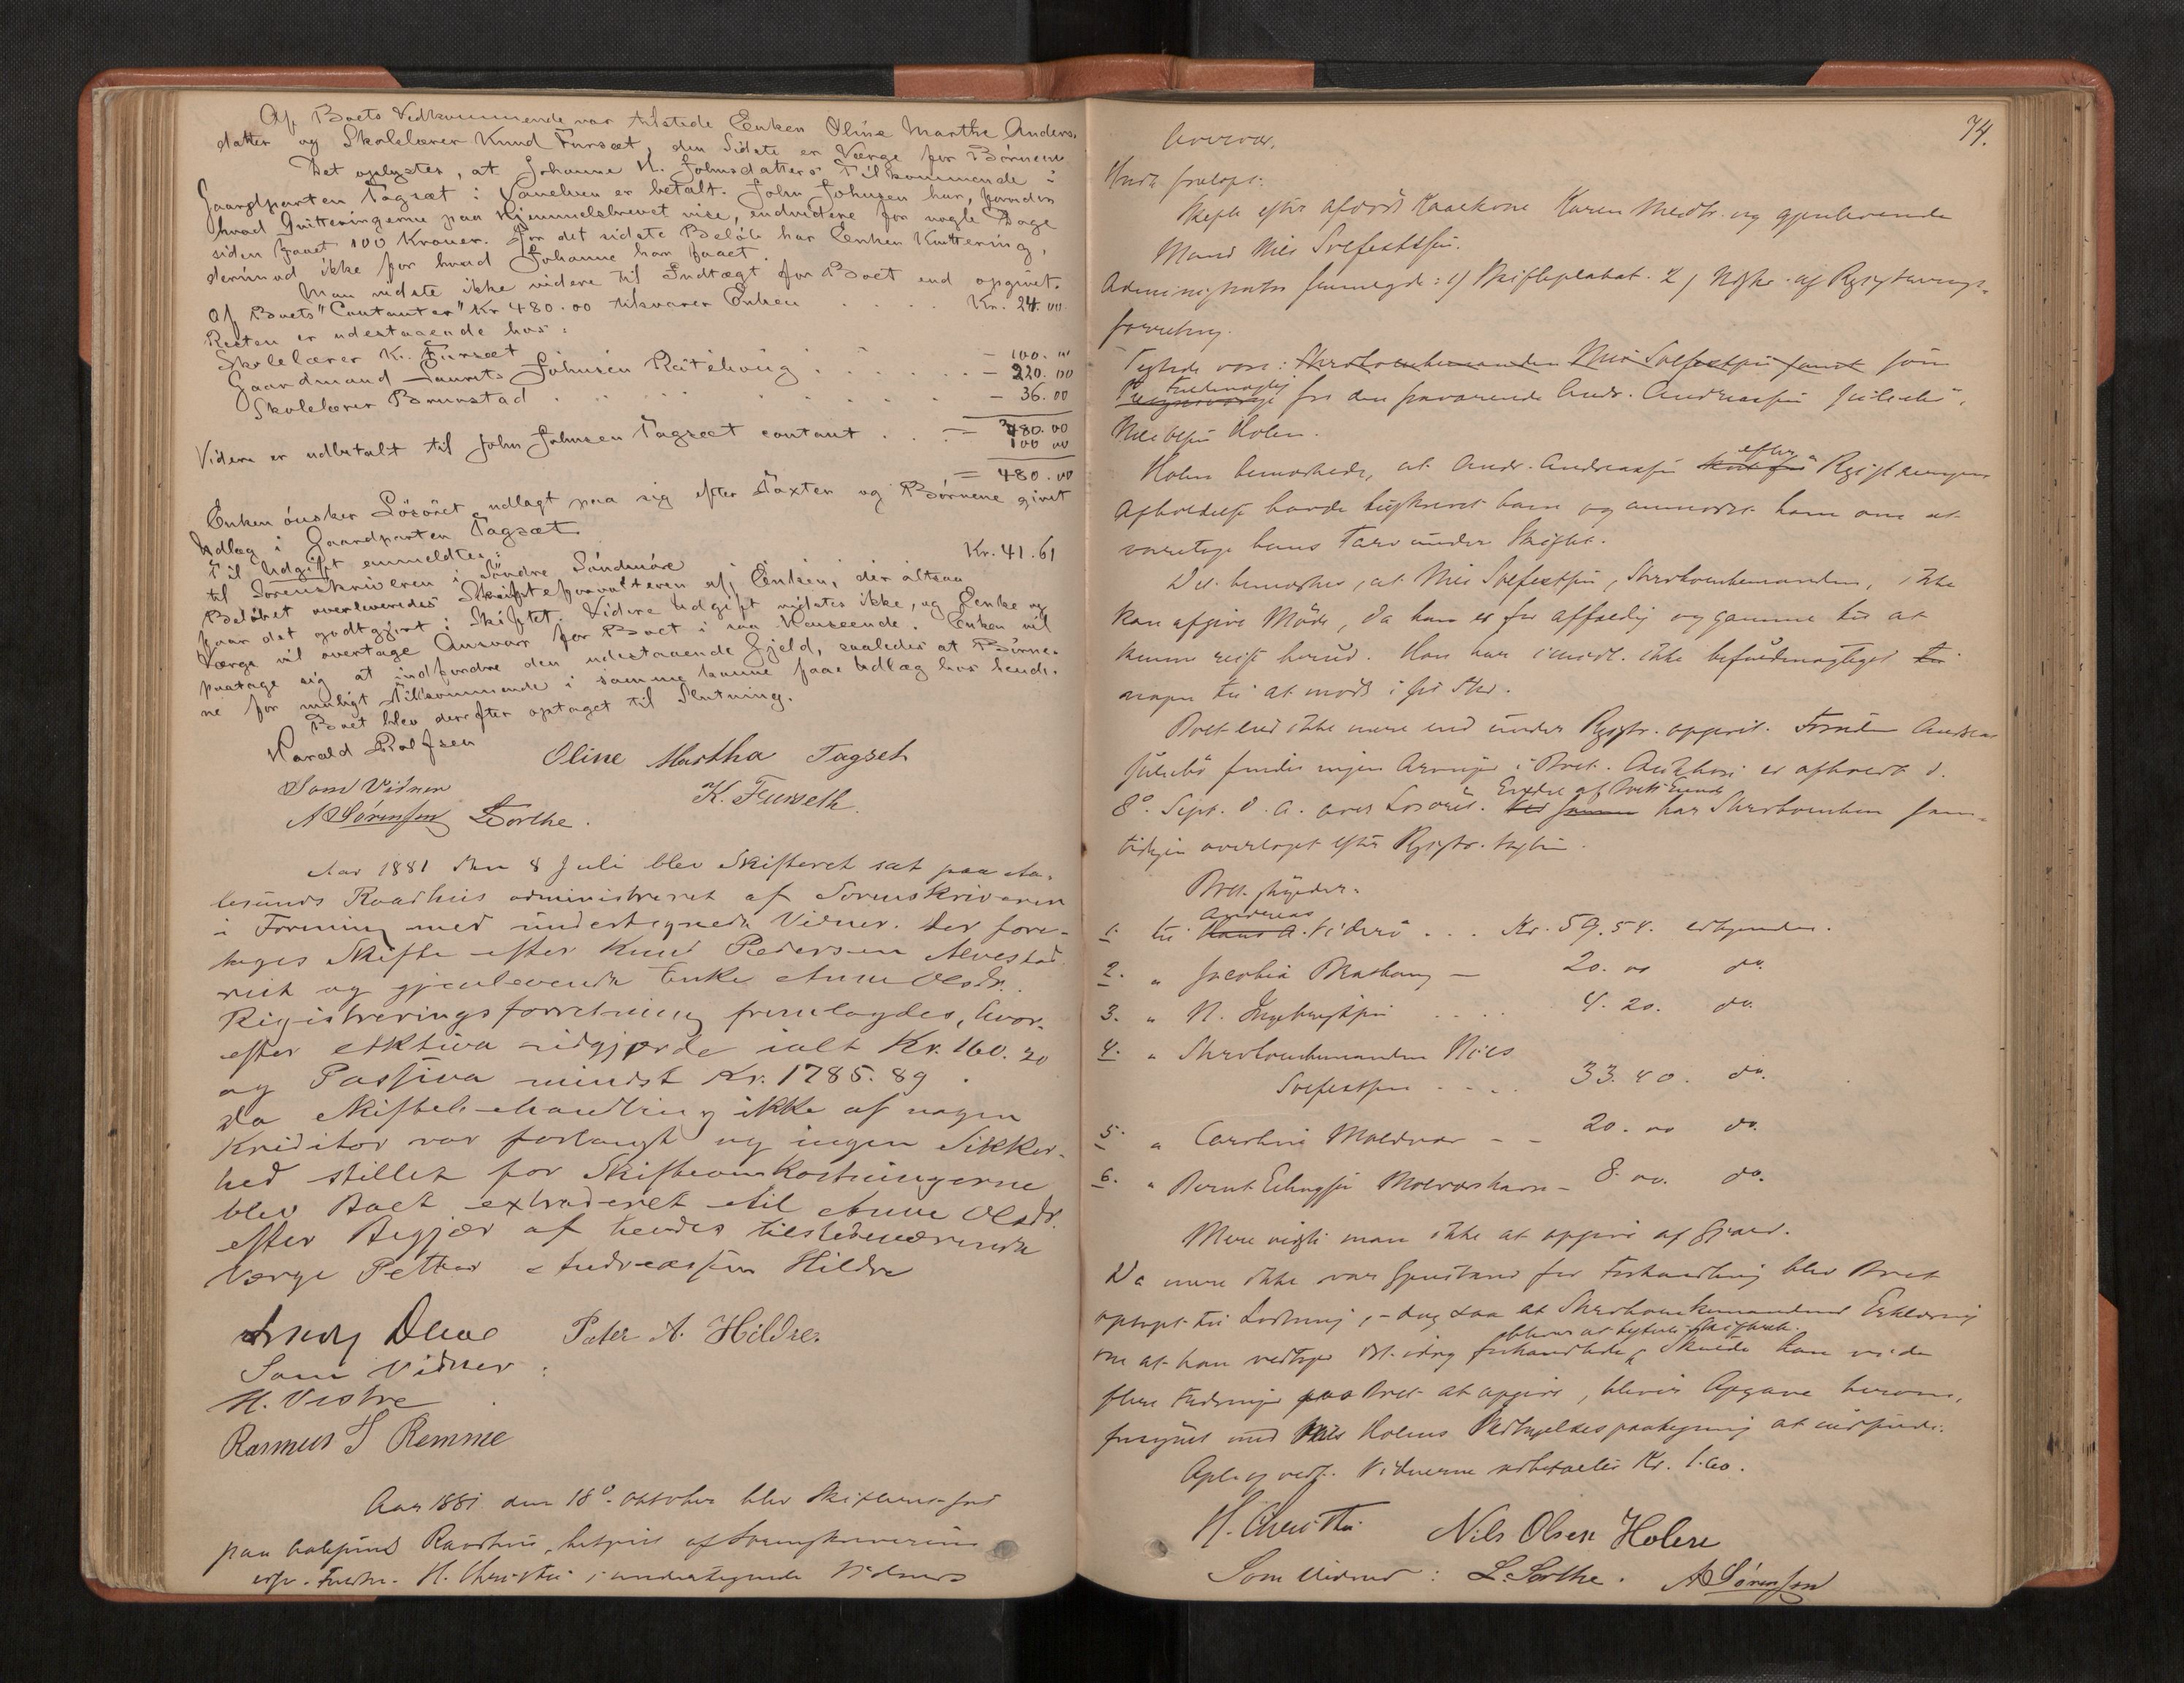 Af Boets Vedkommende var tilstede Enken Oline Marthe Anders-
datter og Skolelærer Knud Fursæt, den Sidste er Værge for Børnene
Det oplystes, at Johanne M. Johnsdatters Tilkommende i
Gaardparten Tagsæt i Vanelven er betalt. John Johnsen har, foruden
hvad Qvitteringerne paa Hjemmelsbrevet vise, endvidere for nogle Dage
siden faaet 100 Kroner. For det sidste Beløb har Enken Kvittering,
derimod ikke for hvad Johanne har faaet.
Man vidste ikke videre til Indtægt for Boet end opgivet.
Af Boets "Contanter" Kr 480.00 tilsvarer Enken . . . . Kr. 24.00
Resten er udestaaende hos:
Skolelærer K. Fursæt . . . — 100. "
Gaardmand Laurits Johnsen Røtehoug . . . . . — 220.00
Skolelærer Brunstad . . . . . . . . — 36.00
380.00
Videre er udbetalt til John Johnsen Tagsæt contant . . . — 100 00
= 480.00
Enken ønsker Løsøret udlagt paa sig efter Taxten og Børnene givet
Udlæg i Gaardparten Tagsæt.
Til Udgift anmeldtes:
til Sorenskriveren i Søndre Søndmøre Kr. 41.61
Beløbet overleveredes Skifteforvalteren af Enken, der altsaa
faar det godtgjort i Skiftet. Videre Udgift vidstes ikke, og Enke og
Værge vil overtage Ansvar for Boet i saa Henseende. Enken vil
paatage sig at indfordre den udestaaende Gjeld, saaledes at Børne-
ne for muligt Tilkommende i samme kunne faae Udlæg hos hende.
Boet blev derefter optaget til Slutning.
Harald Rolfsen Oline Martha Tagseth
Som Vidner K. Fursseth
A Sørensen L Sorthe.
Aar 1881 den 8 Juli blev Skifteret sat paa Aa-
lesunds Raadhus administreret af Sorenskriveren
i Forening med undertegnede Vidner. Der fore-
toges Skifte efter Knud Pedersen Alvestad
vik og gjenlevende Enke Anne Olsdr.
Registreringsforretning fremlagdes, hvor-
efter Aktiva udgjorde ialt Kr. 160.20
og Passiva mindst Kr. 1785.89.
Da Skiftebehandling ikke af nogen
Kreditor var forlangt og ingen Sikker-
hed stillet for Skifteomkostningerne
blev Boet extraderet til Anne Olsdr.
efter Begjær af hendes tilstedeværende
Værge Petter Andreassen Hildre
Peter A. Hildre.
Som Vidner:
H. Vestre
Rasmus S Remme
Aar 1881 den 18de Oktober blev Skifteret sat
paa Aalesunds Raadhus, betjent af Sorenskriverens
H. Christie i undertegnede Vidners
74.
Overvær.
Hvor foretoges:
Skifte efter afdøde Karen Nielsdr. og gjenlevende
Mand Niels Solfestsen.
Administrator fremlagde: 1) Skifteplakat. 2) Udskr. af Registrerings-
forretning.
Tilstede vare: Sterbohusbonden Nils Solfestsen samt som
Fuldmægtig for den fraværende Andr. Andreassen Julebø,
Nils Olsen Holen.
Holen bemærkede, at Andr. Andreassen efter Registreringens
Afholdelse havde tilskrevet ham og anmodet ham om at
varetage hans Tarv under Skiftet.
Det bemærkes, at Niels Solfestsen, Sterbohusmanden, ikke
kan afgive Møde, da han er for affældig og gammel til at
kunne reise herud. Han har imidl. ikke befuldmægtiget
nogen til at møde i sit Sted.
Boet eied ikke mere end under Registr. opgivet. Foruden Andreas
Julebø findes ingen Arvinger i Boet. Auktion er afholdt d.
8de Sept. d. A. over Løsøret. En Del af Boets Eiende har Sterboenken sam-
tidigen overtaget efter Registr. taxten.
Boet skylder.
1. til Andreas A. Viderø . . . Kr. 59.54. erkjendes.
2. " Jacobia Brathaug — 20.00 do.
3. " N. Ingebrigtsen . . . . 4.20. do.
4. " Sterbohusmanden Niels
Solfestsen . . . . 33.40. do.
5. " Caroline Moldvær — — 20.00 do.
6. " Bernt Ellingsen Molværshavn — 8.00. do.
Mere vidste man ikke at opgive af Gjæld.
Da mere ikke var Gjenstand for Forhandling blev Boet
optaget til Slutning, — dog saa at Sterbohusmandens Erklæring
om at han vedtager det idag forhandlede bliver at bytilføie Skiftet. Skulde han vide
flere Fordringer paa Boet at opgive, bliver Opgave herom,
forsynet med Nils Holens Vedtagelsespaategning at indsende.
Oplæst og vedt. Vidnerne udbetaltes Kr. 1.60.
H. Christie Nils Olsen Holen
Som Vidner: L. Sorthe. A Sørensen